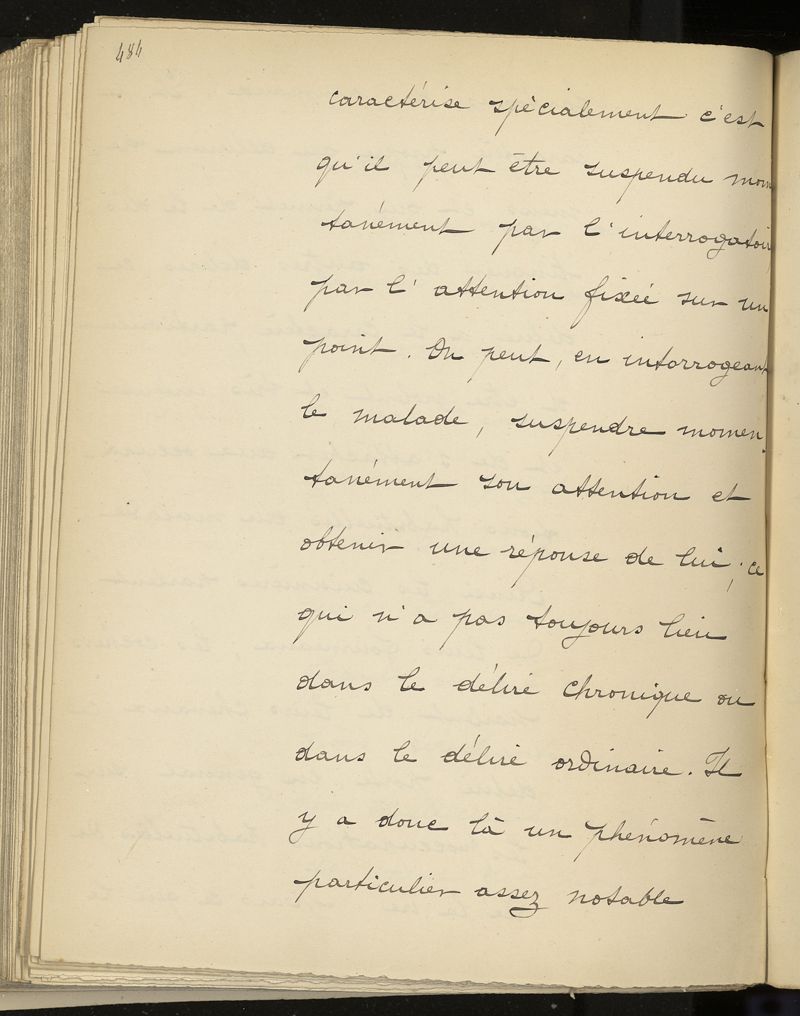 484
caractérise spécialement c'est
qu'il peut être suspendu mom
tanément par l'interrogatoir
par l'attention fixée sur un
point. On peut, en intorrogeant
le malade, suspendre momen-
tanément son attention et
obtenir une réponse de lui ; ce
qui n'a pas toujours lieu
dans le délire chronique ou
dans le délire ordinaire. Il
y a donc là un phénomène
particulier assez notable